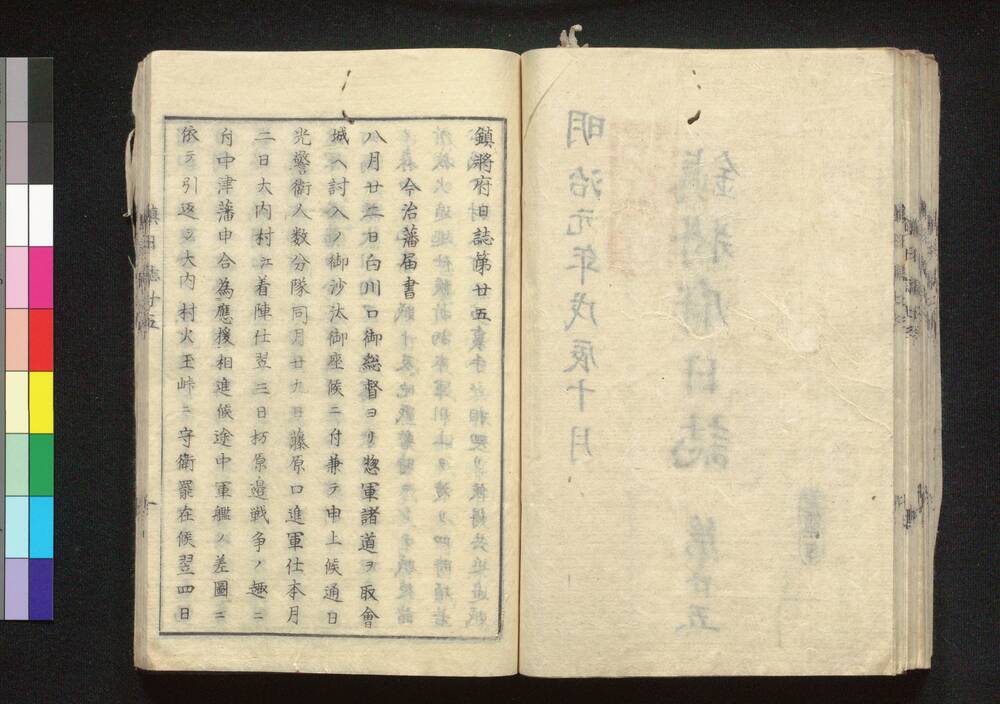 明治元年戊辰十月
鎮將府日誌第廿五
今治藩届書
八月廿二日白川口御総督ヨリ惣軍諸道ヲ取會
城ヘ討入ノ御沙汰御座候ニ付兼テ申上候通日
光警衛人数分隊同月廿九日藤原口進軍仕本月
二日大内村江着陣仕翌三日栃原邊戦争ノ趣ニ
付中津藩申合為應援相進候途中軍艦ノ差圖ニ
依テ引返シ大内村火玉峠ニ守衛罷在候翌四日